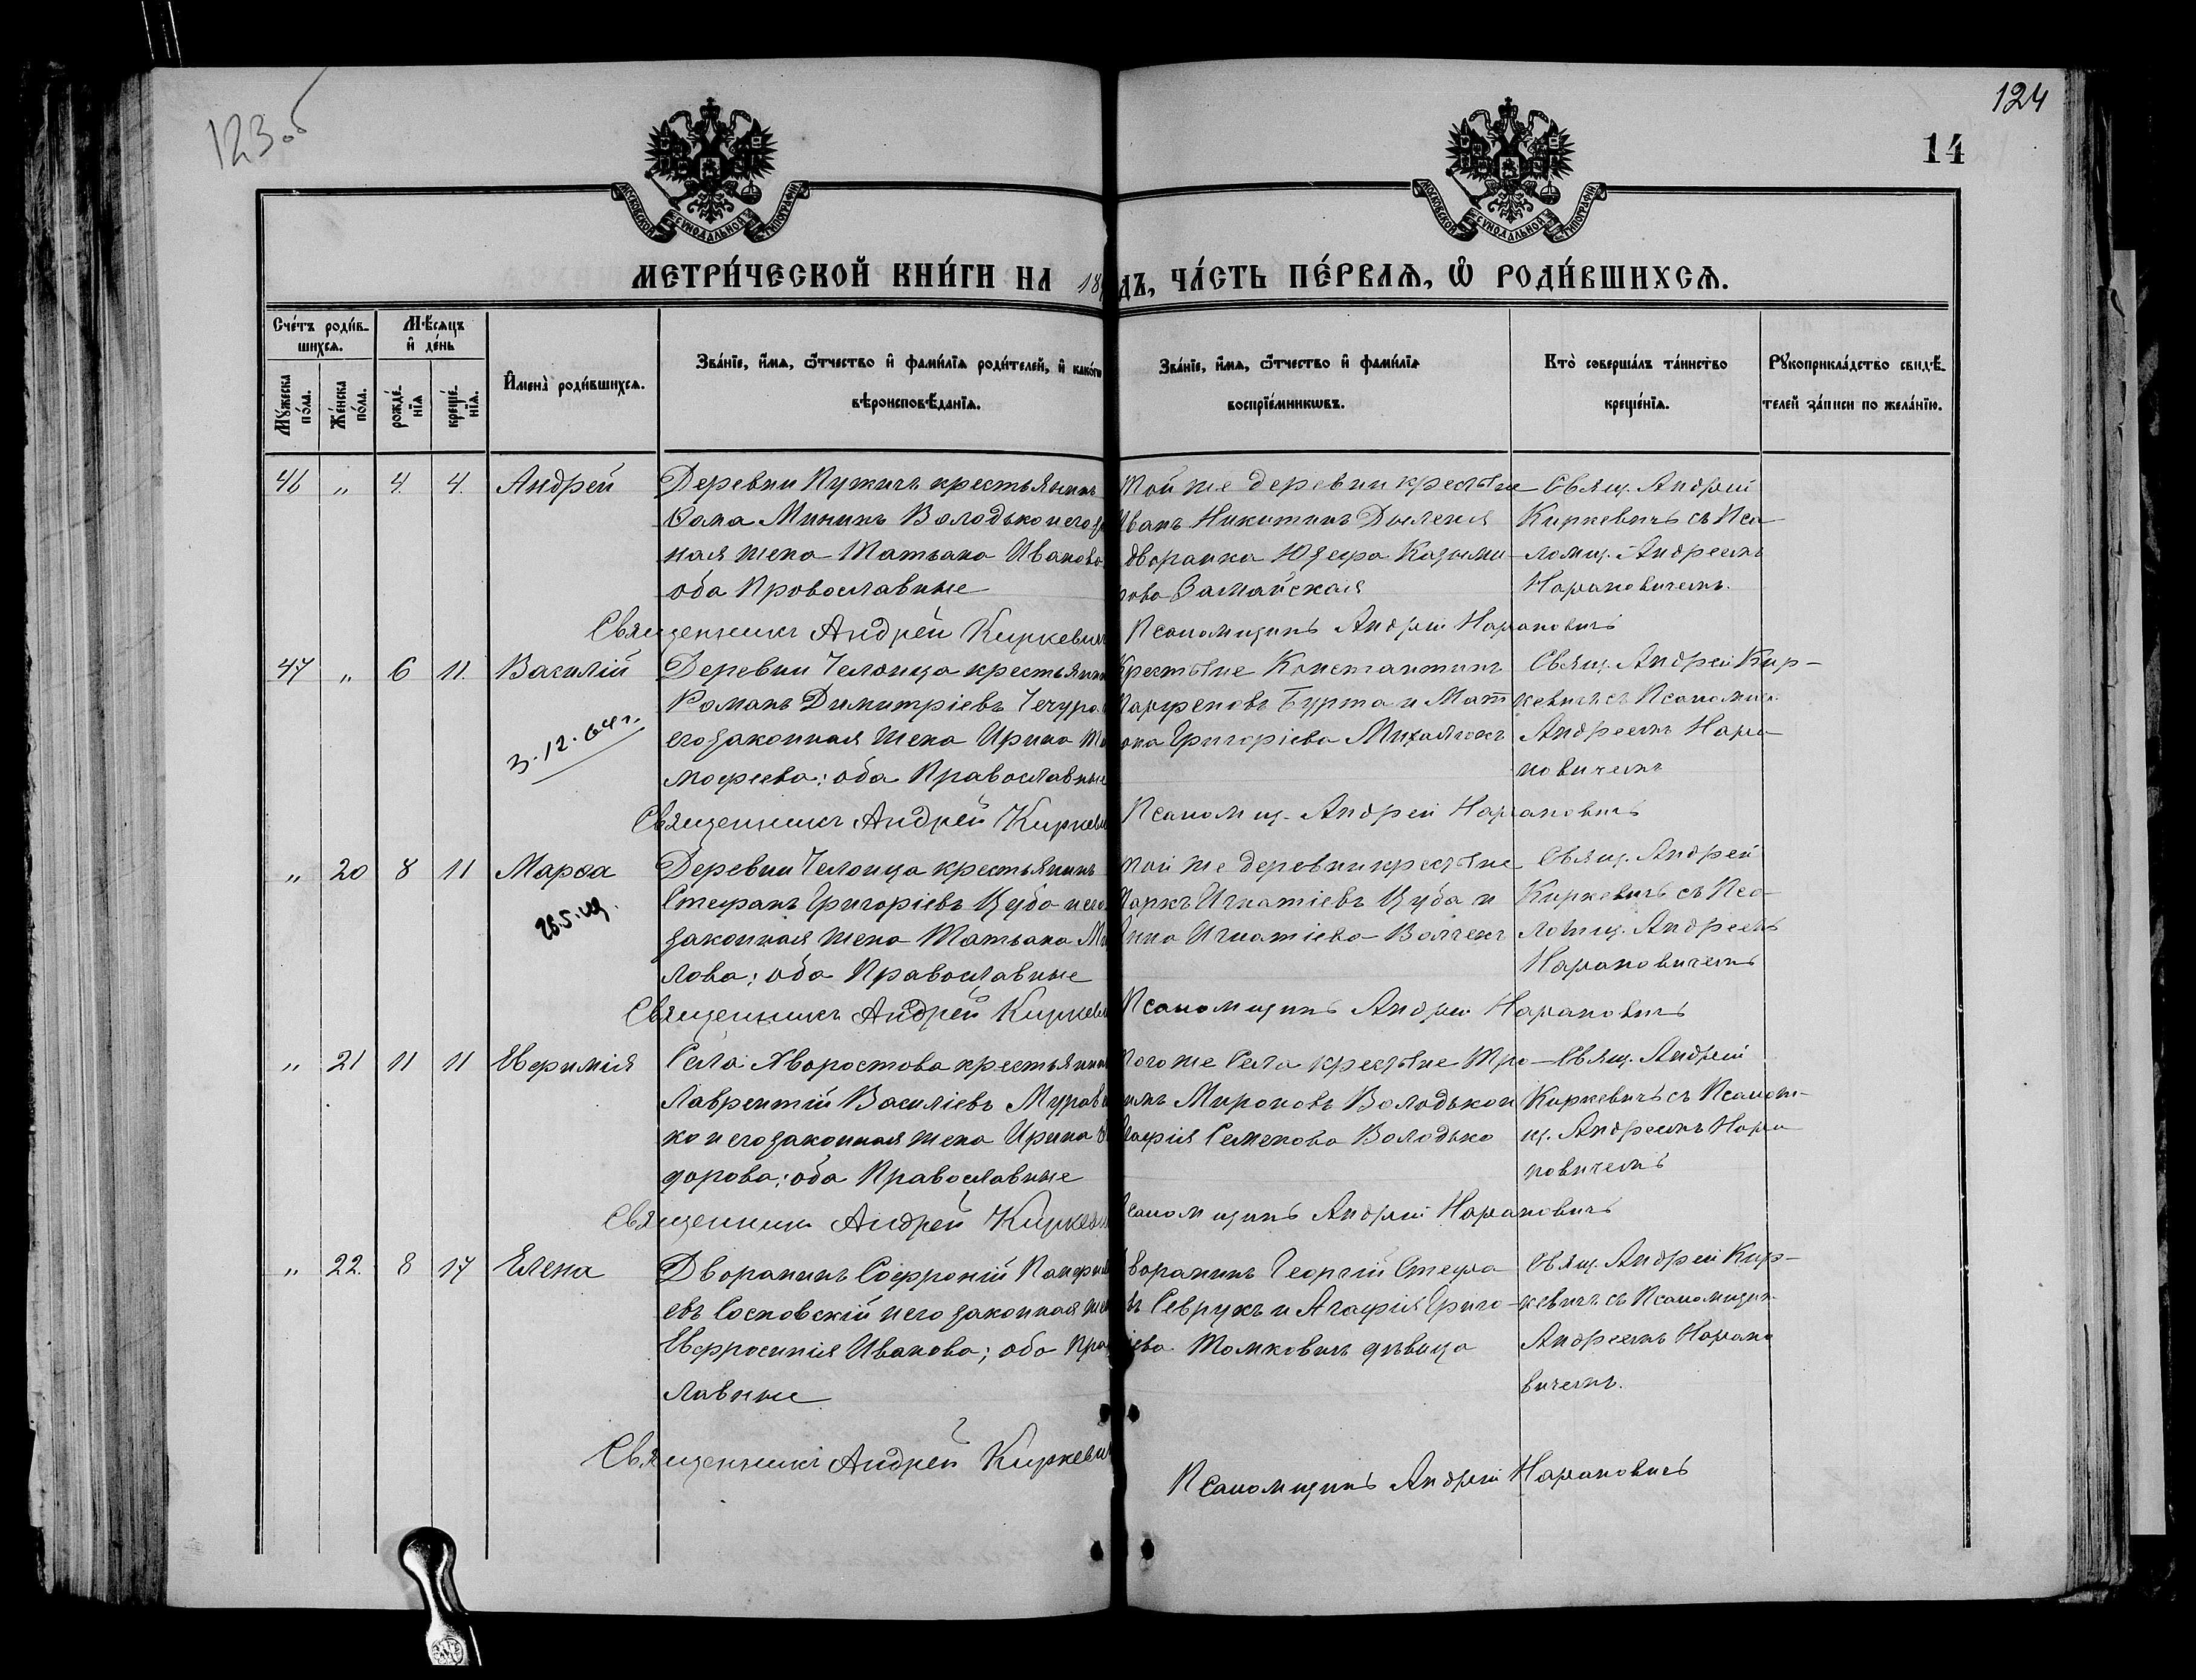 123об
124
14
МОСКОВСКОЙ СУНОДАЛЬНОЙ ТИПОГРАФІИ
МОСКОВСКОЙ СУНОДАЛЬНОЙ ТИПОГРАФІИ
МЕТРИ́ЧЕСКОЙ КНИ́ГИ НА 18
дъ, ЧА́СТЬ ПЕ́РВАѦ, Ѡ РОДИ́ВШИХСѦ.
Сче́тъ роди́в-
шихсѧ.
Мѣ́сѧцъ
и҆ де́нь
Мꙋ́жеска
по́ла.
Же́нска
по́ла.
рожде́-
нїѧ
креще́-
нїѧ.
И҆мена̀ роди́вшихсѧ.
Зва́нїе, и҆́мѧ, ѻ҆́тчество и҆ фами́лїѧ роди́телей, и҆ како́гѡ
вѣроисповѣ́данїѧ.
Зва́нїе, и҆́мѧ, ѻ҆́тчество и҆ фами́лїѧ
воспрїе́мникѡвъ.
Кто̀ соверша́лъ та́инство
креще́нїѧ.
Рꙋкоприкла́дство свидѣ́-
телей за́писи по жела́нїю.
46 " 4. 4. Андрей
Деревни Пужичъ крестьянинъ
Мининъ Володько и его за
ная жена Татьана Иванова
оба Провославные
Той же деревни крестьне
Иванъ Никитинъ
дворанка Юзефа Казими
рова Замайская
Свящ. Андрей
Киркевичъ съ Пса
ломщ. Андреемъ
Нарановичемъ.
Священникъ Андрей Киркевичъ
Псаломщикъ Андрей Нарановичъ
47 " 6 11. Василій
3.12.64г.
Деревни Челонца крестьянинъ
Романъ Димитріевъ
его законная жена Ирина Ти
мофеева; оба Православные
Крестьне Константинъ
Парфеновъ Бурта и Мат
рона Григоріева Михалюкъ
Свящ. Андрей Кир-
кевичъ съ Псаломщ.
Андреемъ Нара
новичемъ
Священникъ Андрей Киркевич
Псаломщ. Андрей Нарановичъ
" 20 8 11 Марѳа
Деревни Челонца крестьянинъ
Стефанъ Григоріевъ Цуба и его
законная жена Татьана Ми
лова; оба Православные
Той же деревни крестьне
Маркъ Игнатіевъ Цуба и
Анна Игнатіева Волчекъ
Свящ. Андрей
Киркевичъ съ Пса
ломщ. Андреемъ
Нарановичемъ
Священникъ Андрей Киркеви
Псаломщикъ Андрей Нарановичъ
" 21 11 11 Евфимія
Села Хворостова крестьянинъ
Лаврентій Василіевъ Муравей
ко и его законная жена Ирина Ѳе
дорова; оба Православные
Того же Села крестьне Тро-
имъ Мироновъ Володько и
Агафія Семенова Володько
Свящ. Андрей
Киркевичъ съ Псалом-
щ. Андреемъ Нара
новичемъ
Священникъ Андрей Киркевич
Псаломщикъ Андрей Нарановичъ
" 22. 8 17 Елена
Дворанинъ Софроній Панфил
евъ Сосновскій и его законная же
Евфросинія Иванова; оба Пра
лавные
Дворанинъ Георгій Стефа
въ Севрукъ и Агафія Григо-
іева Томковичъ дѣвица
Свящ. Андрей Кир-
кевичъ съ Псаломщик
Андреемъ Нарано
вичемъ.
Священникъ Андрей Киркевич
Псаломщикъ Андрей Нарановичъ